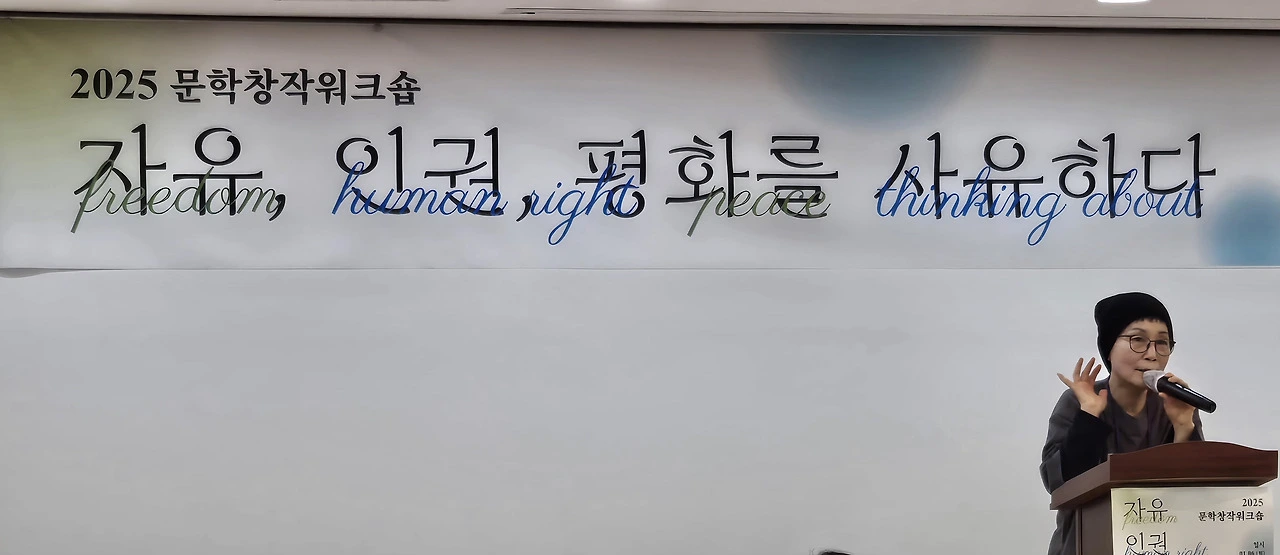 2025 문학창작워크숍
자유, 인권, 평화를 사유하다
freedom, human right peace thinking about
2025
문학창작워크숍
자유
freedom
인권
human right
일시